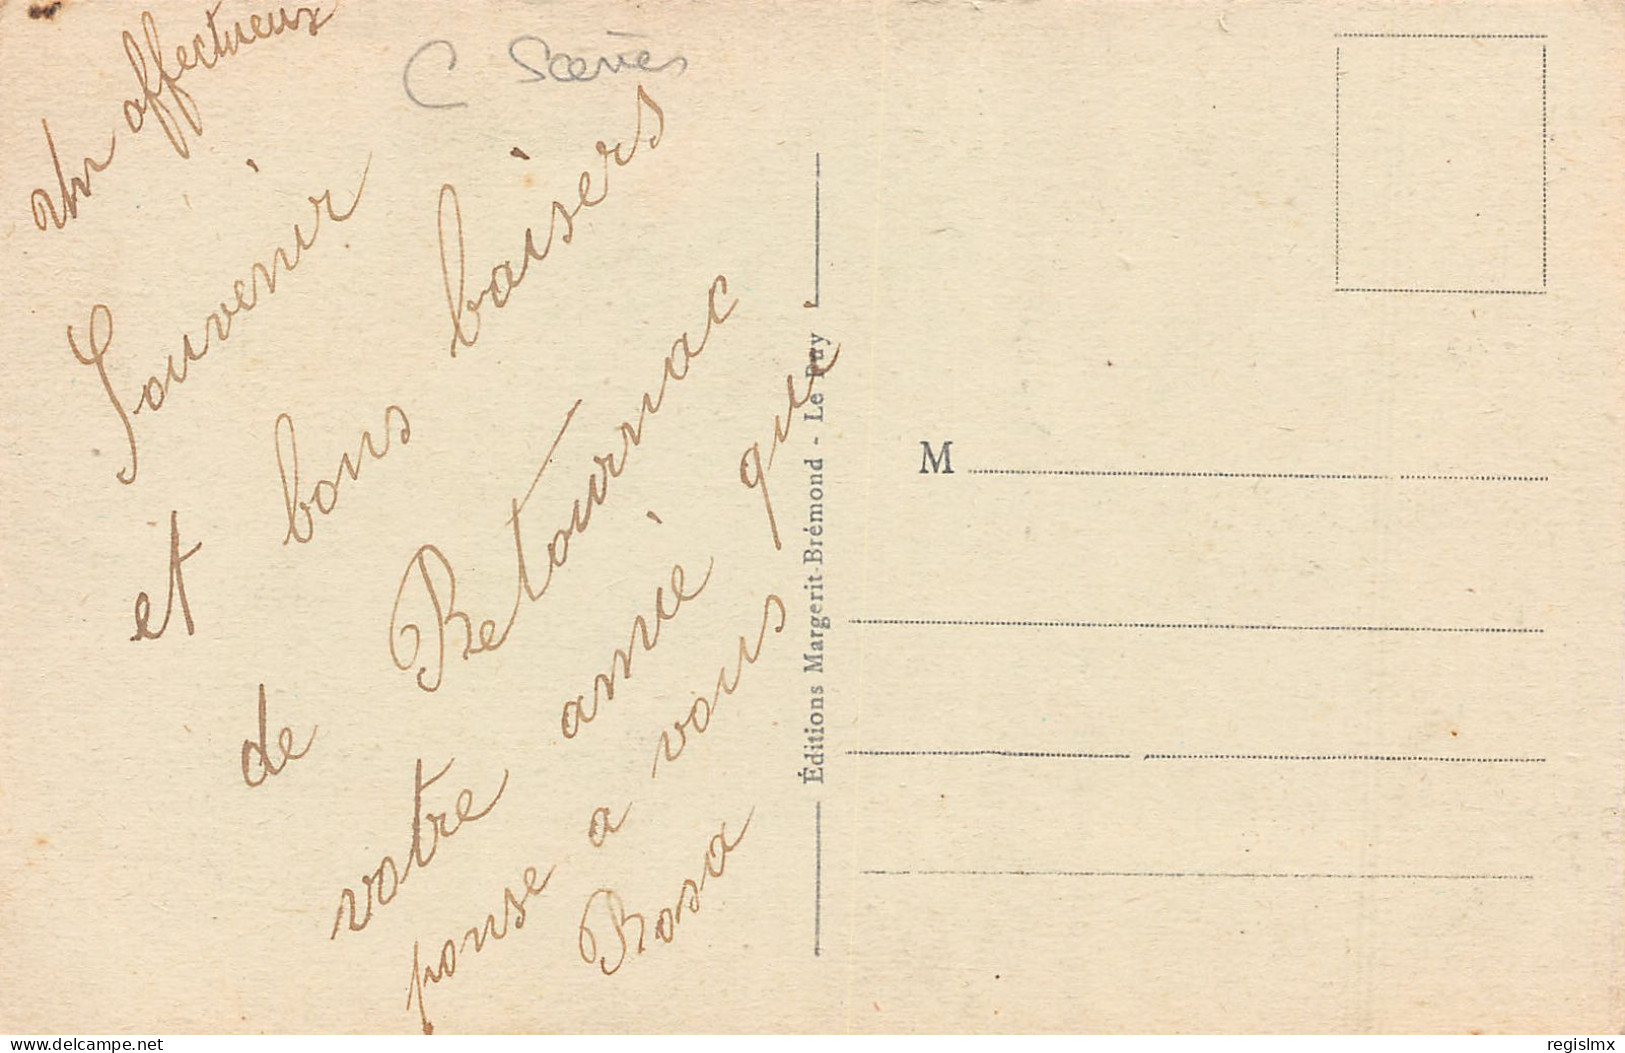 un affectueux
Souvenir
et bons baisers
de Retournac
votre amie que
ponse a vous
Rosa
C Scènes
Éditions Margerit-Brémond - Le Puy
M
delcampe.net
regislmx